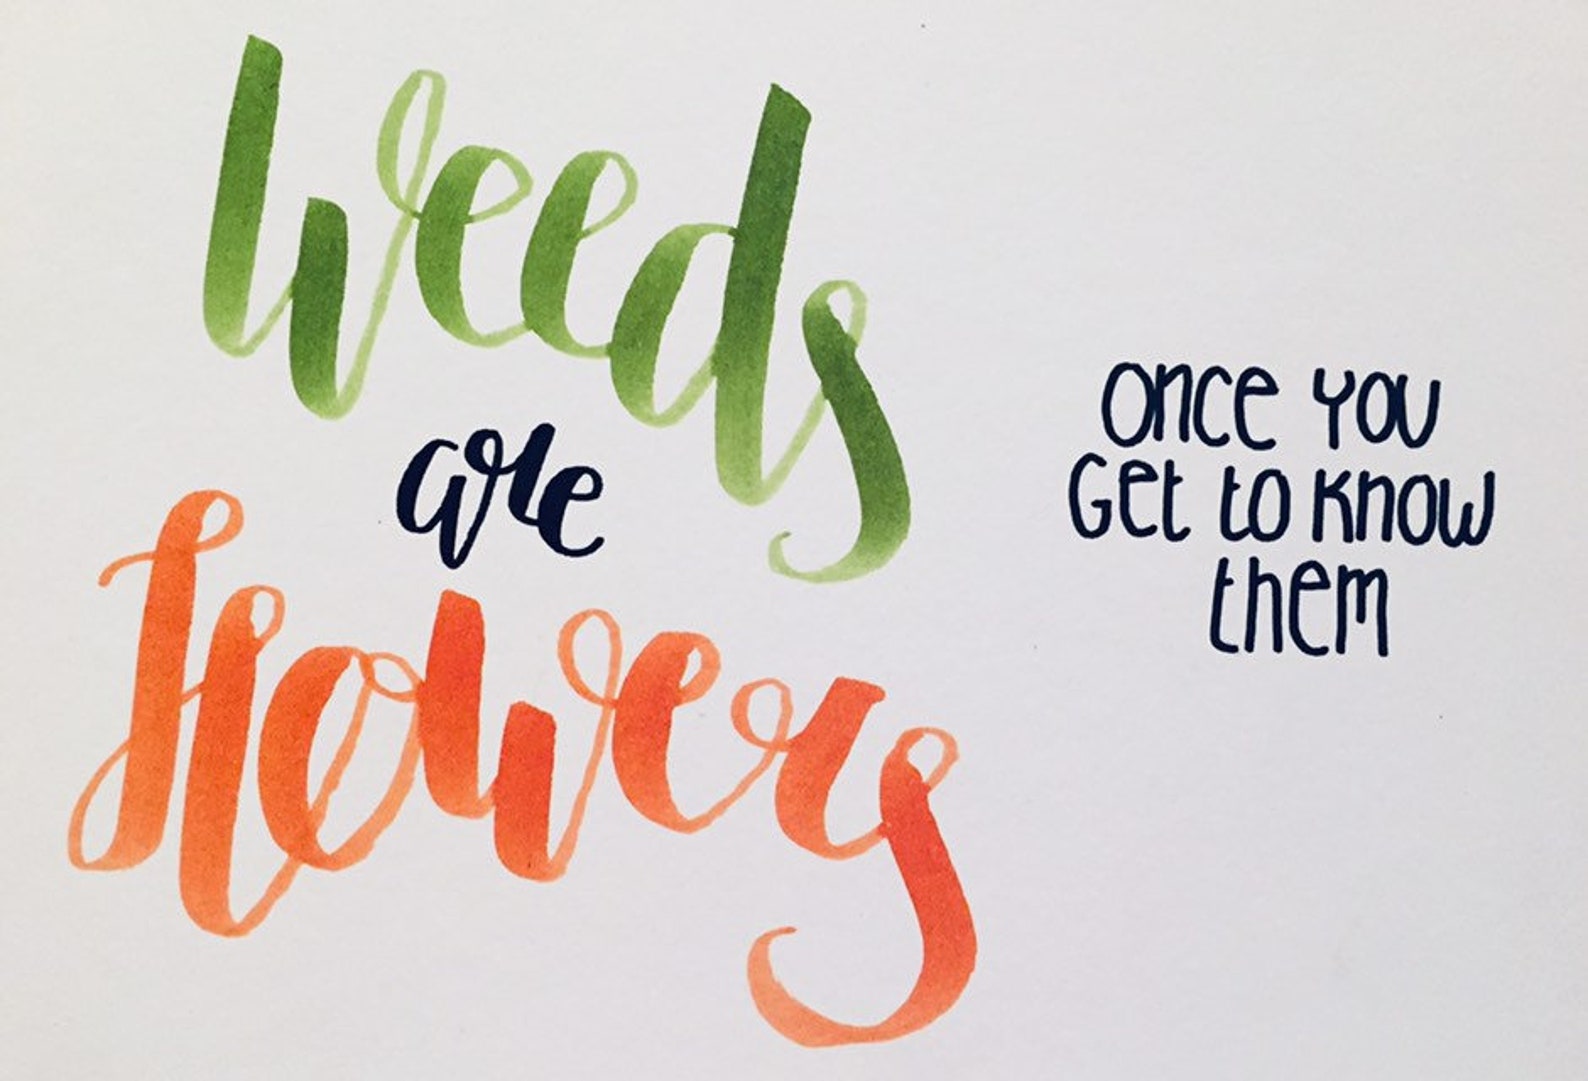 Weeds
are
flowers
once you
Get to know
them